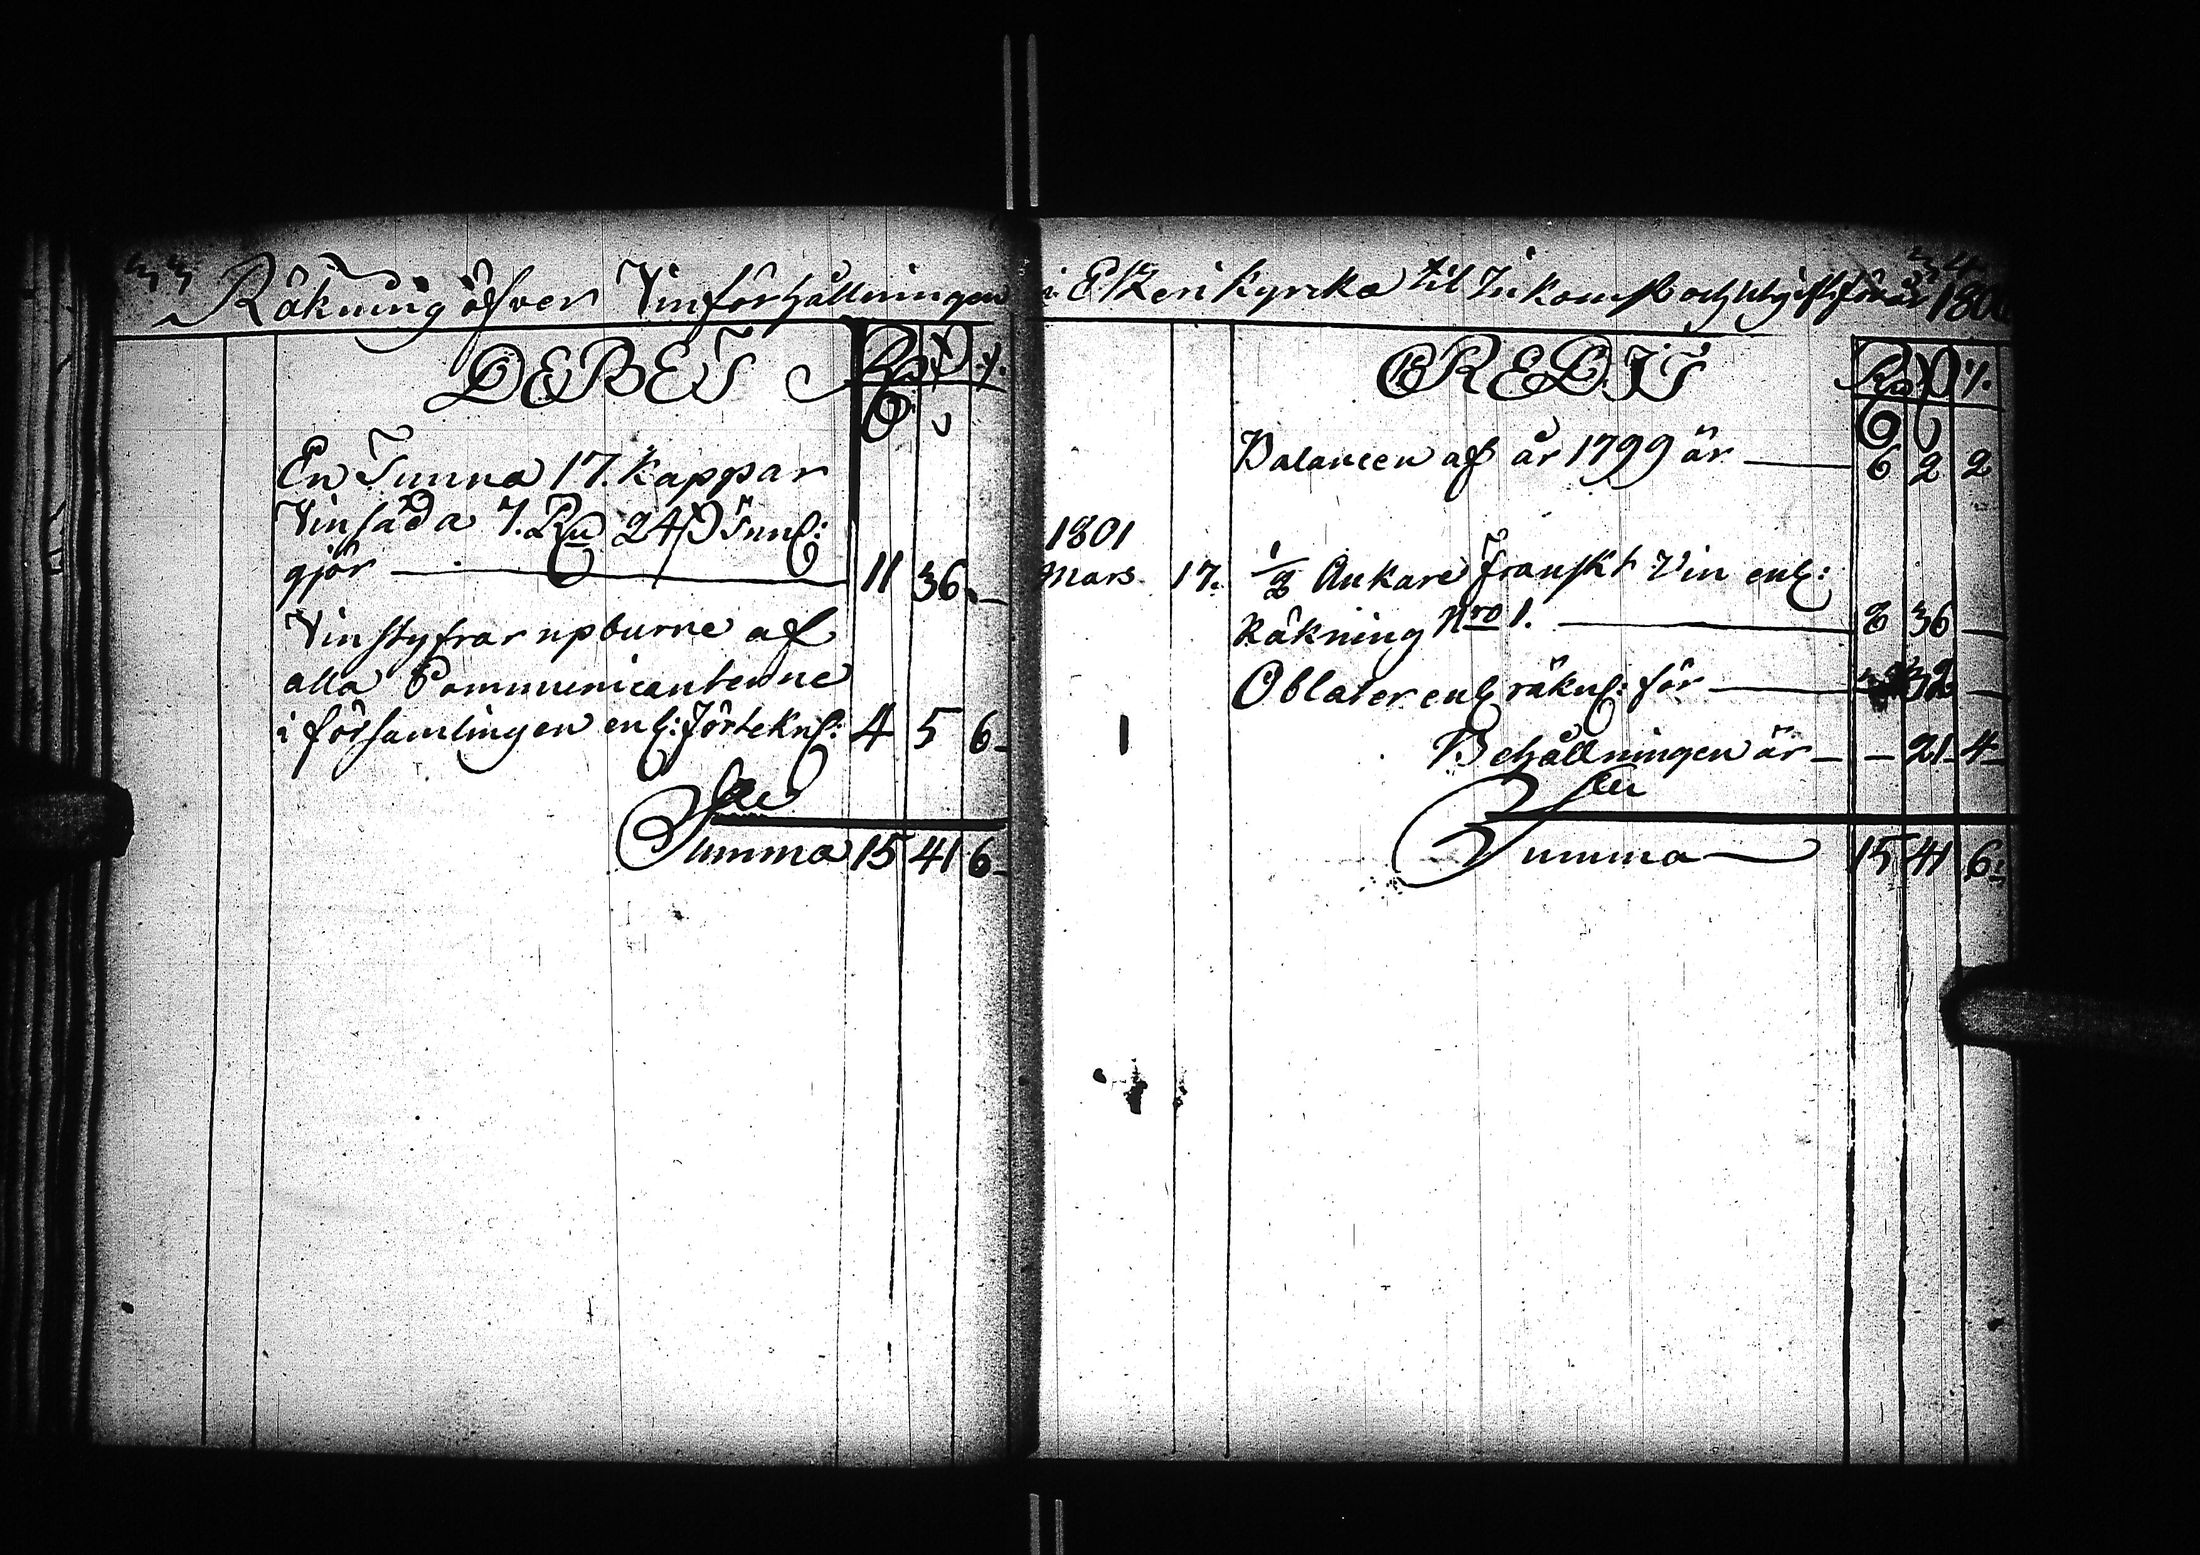 33
Räkning öfver Vinförhållningen
DEBET Rd ß r.
En Tunna 17. Kappar
Vinsäd a 7. Rd 24 ß Tunl:
gjör — 11 36. —
Vinstyfrar upburne af
alla Communicanterne
i församlingen enl: förtekn: 4 5 6
Summa 15 41 6
34
i Ekeri Kyrka til Inkomst och Utgift för år 1800
CREDIT Rd ß r.
Balancen af år 1799 är — 6 2 2
1801
Mars 17. 1/2 Ankare Franskt Vin enl:
Räkning Nro 1. — 8 36 —
Oblater enl räkn: för — 32 —
Behållningen är — — 21 4
Summa — 15 41 6